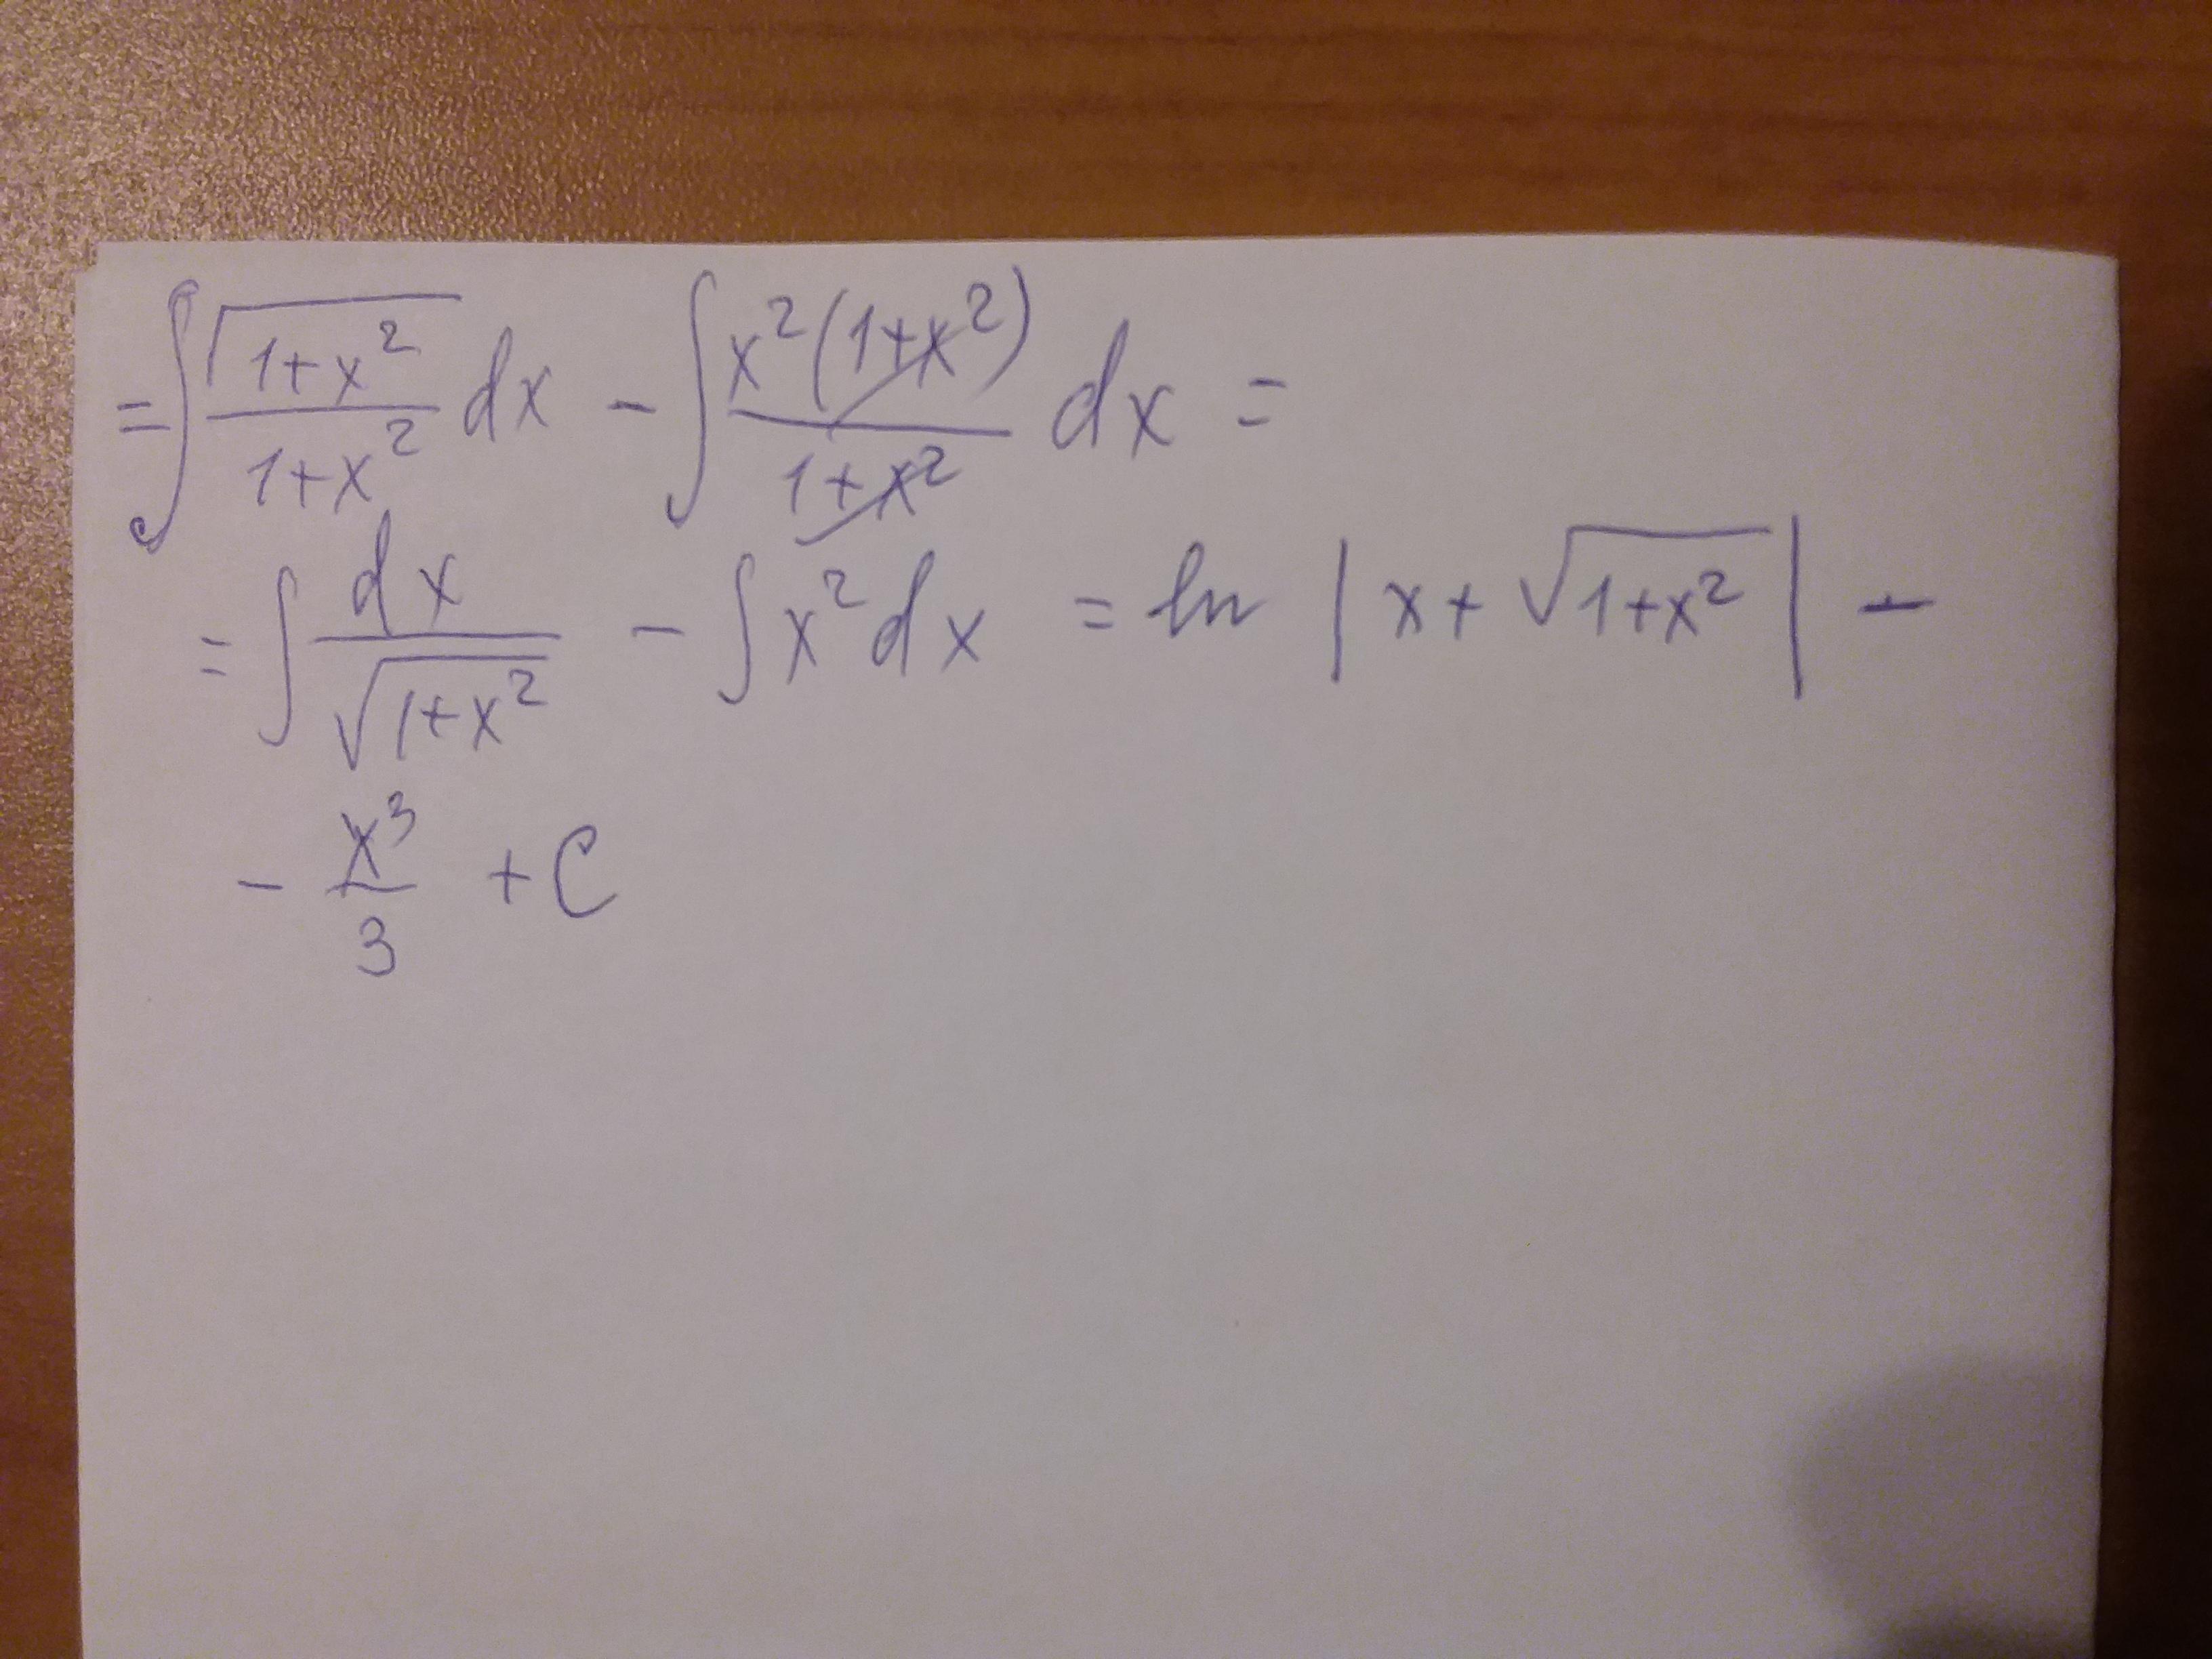 = ∫ √(1+x²)/(1+x²) dx - ∫ x²(1+x²)/(1+x²) dx =
= ∫ dx/√(1+x²) - ∫ x² dx = ln |x + √(1+x²)| -
- x³/3 + C